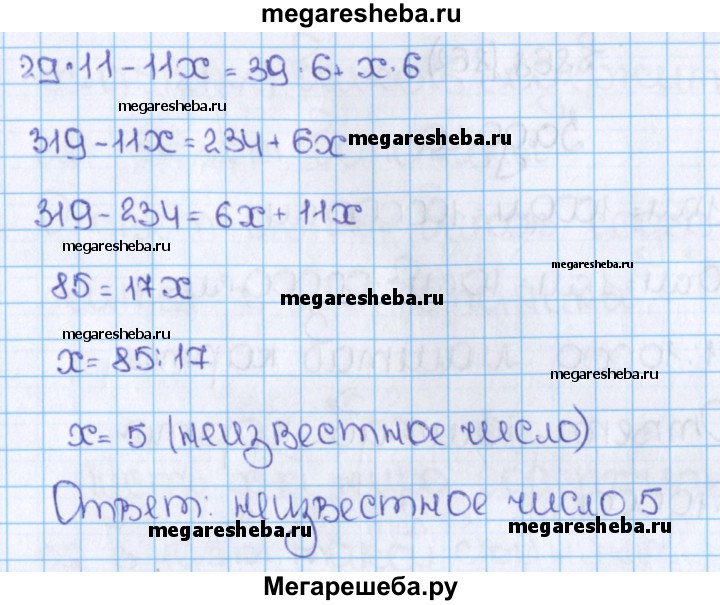 megaresheba.ru
29·11-11x=39·6+x·6
megaresheba.ru
319-11x=234+6x megaresheba.ru
319-234=6x+11x
megaresheba.ru
megaresheba.ru
85=17x
megaresheba.ru
megaresheba.ru
x=85:17
megaresheba.ru
x=5 (неизвестное число)
Ответ: неизвестное число 5
megaresheba.ru
megaresheba.ru
Мегарешеба.ру